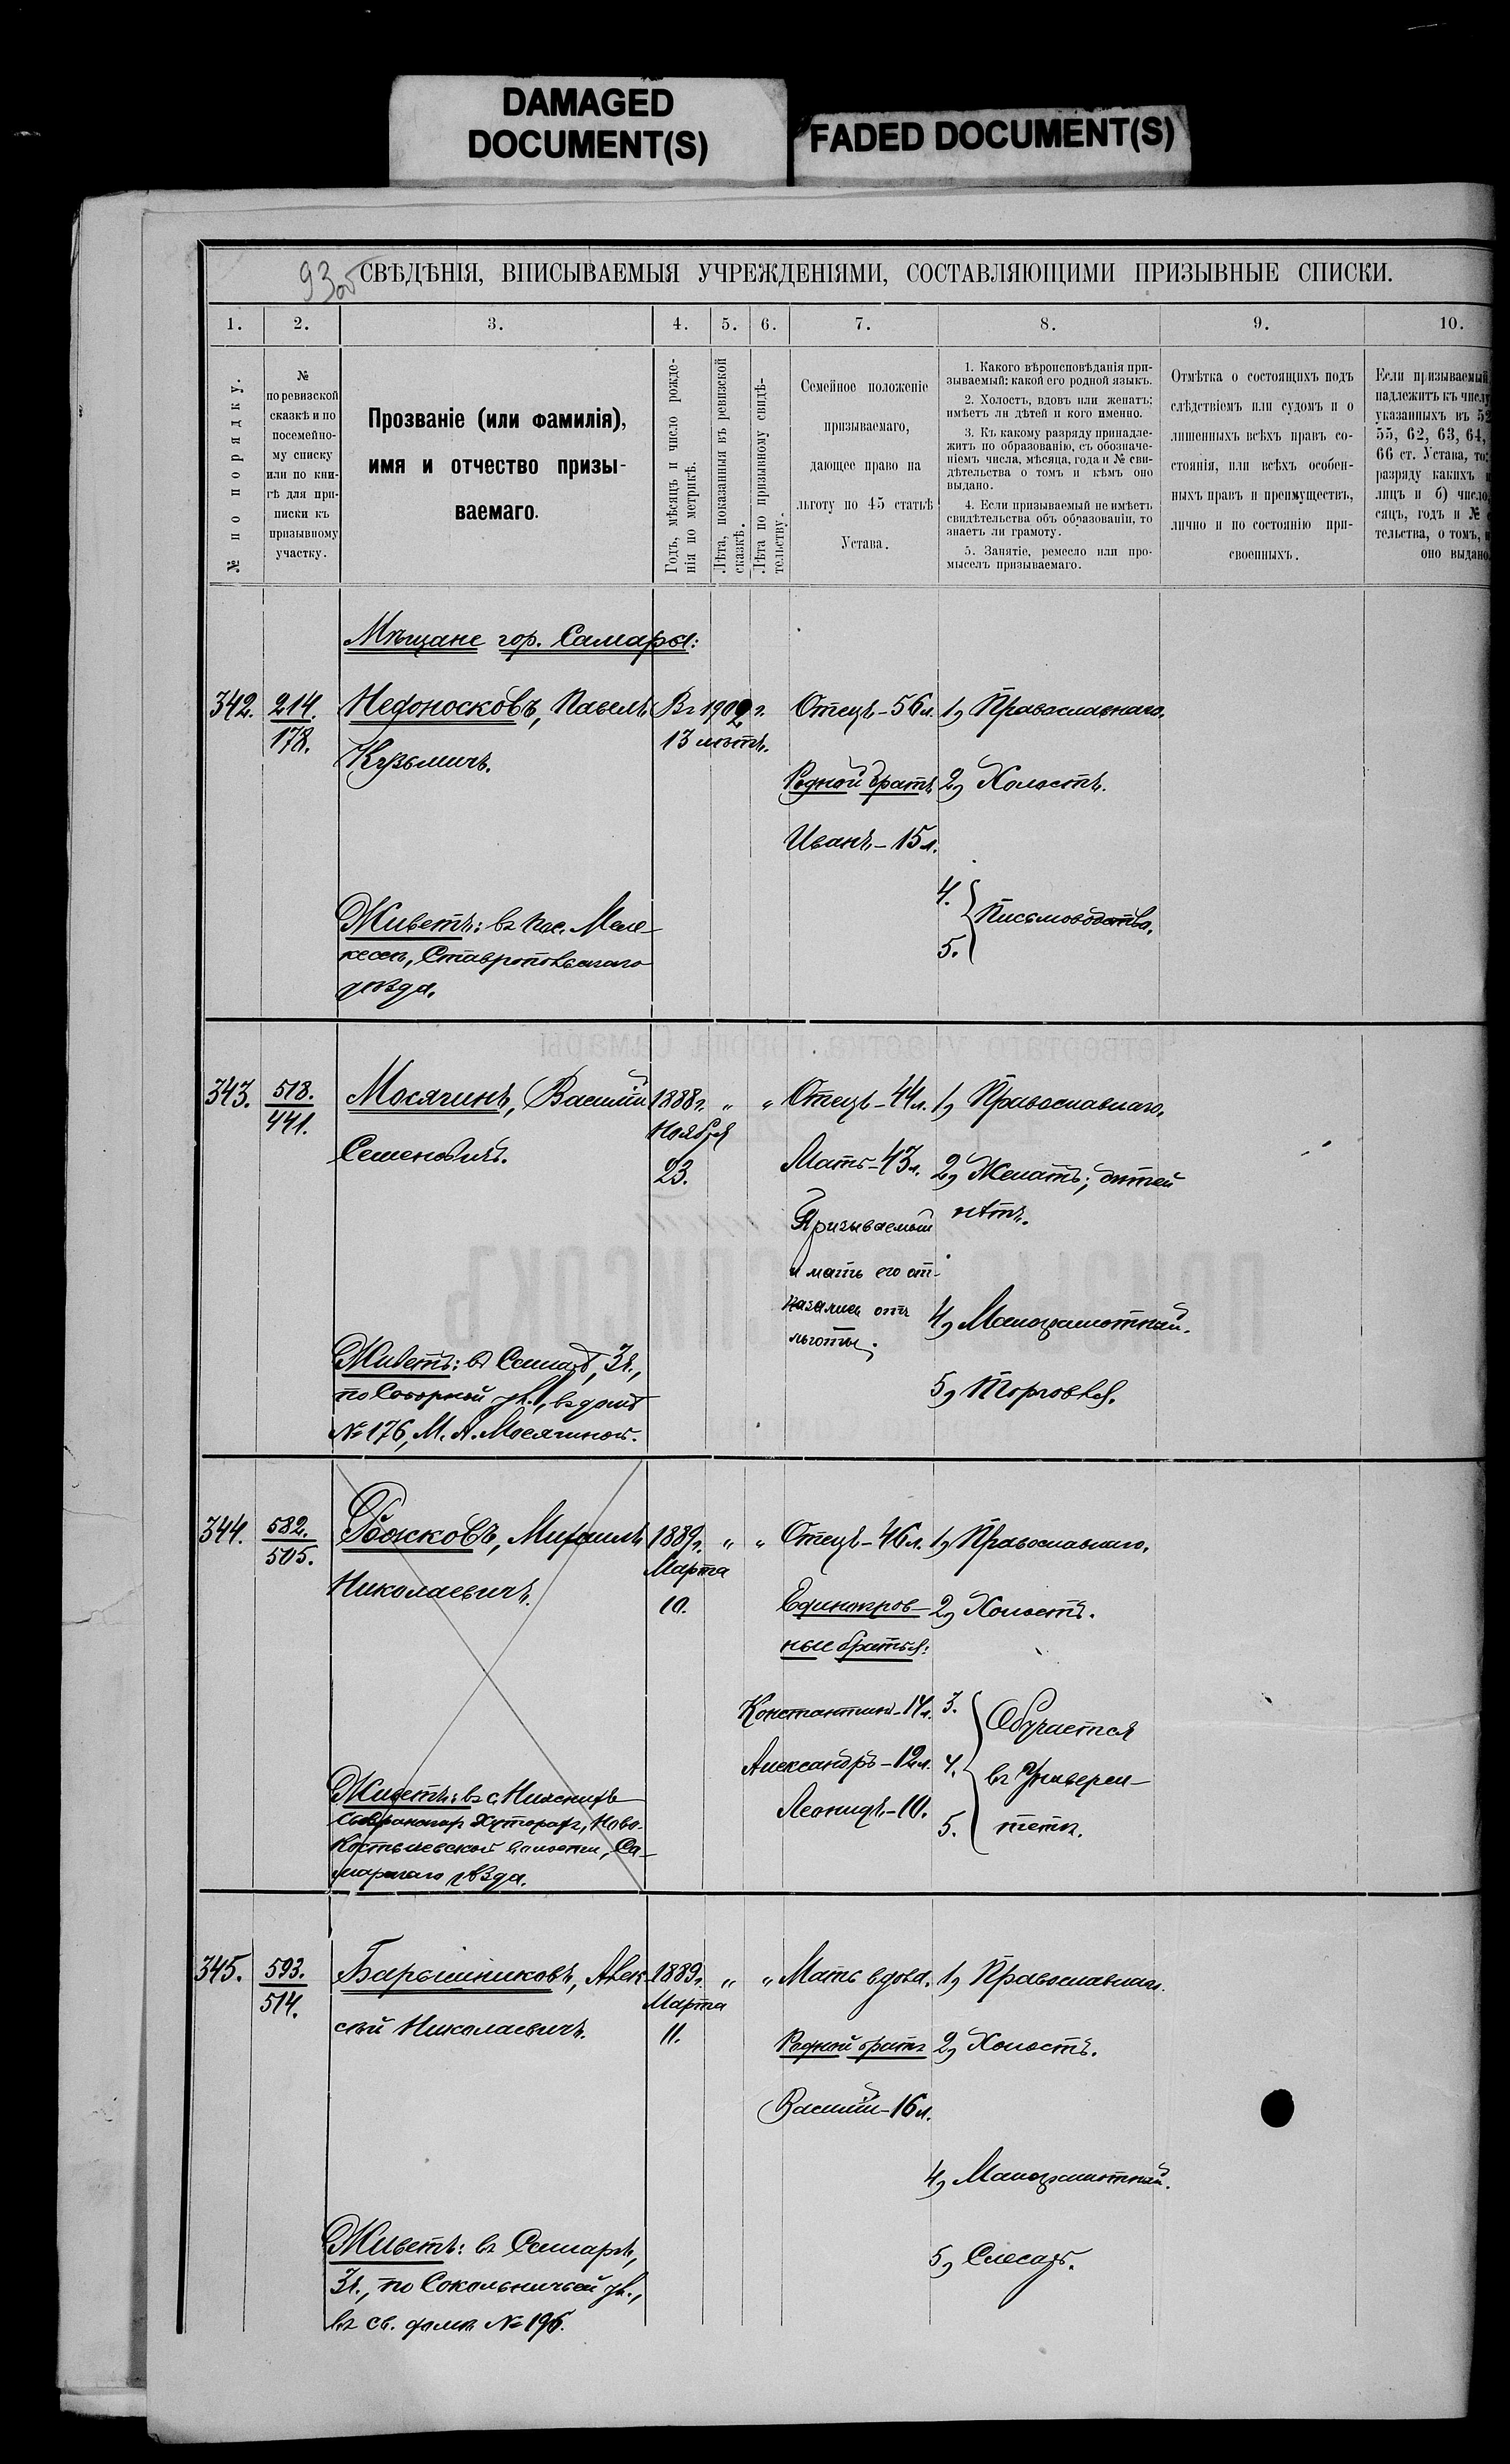 DAMAGED
DOCUMENT(S)
FADED DOCUMENT(S)
93
СВѢДѢНІЯ, ВПИСЫВАЕМЫЯ УЧРЕЖДЕНІЯМИ, СОСТАВЛЯЮЩИМИ ПРИЗЫВНЫЕ СПИСКИ.
1. 2. 3. 4. 5. 6. 7. 8. 9. 10.
№ по порядку.
№
по ревизской
сказкѣ и по
посемейно-
му списку
или по кни-
гѣ для при-
писки къ
призывному
участку.
Прозваніе (или фамилія),
имя и отчество призы-
ваемаго.
Годъ, мѣсяцъ и число рожде-
нія по метрикѣ.
Лѣта, показанныя въ ревизской
сказкѣ.
Лѣта по призывному свидѣ-
тельству.
Семейное положеніе
призываемаго,
дающее право на
льготу по 45 статьѣ
Устава.
1. Какого вѣроисповѣданія при-
зываемый; какой его родной языкъ.
2. Холостъ, вдовъ или женатъ;
имѣетъ ли дѣтей и кого именно.
3. Къ какому разряду принадле-
житъ по образованію, съ обозначе-
ніемъ числа, мѣсяца, года и № сви-
дѣтельства о томъ и кѣмъ оно
выдано.
4. Если призываемый не имѣетъ
свидѣтельства объ образованіи, то
знаетъ ли грамоту.
5. Занятіе, ремесло или про-
мыселъ призываемаго.
Отмѣтка о состоящихъ подъ
слѣдствіемъ или судомъ и о
лишенныхъ всѣхъ правъ со-
стоянія, или всѣхъ особен-
ныхъ правъ и преимуществъ,
лично и по состоянію при-
своенныхъ.
Если призываемый
надлежитъ къ числу
указанныхъ въ 52
55, 62, 63, 64,
66 ст. Устава, то:
разряду какихъ
лицъ и б) число,
сяцъ, годъ и №
тельства, о томъ,
оно выдано
Мѣщане гор. Самары:
342. 214. Недоносковъ, Павелъ Въ 1902 г. Отецъ – 56 л. 1) Православнаго.
178. Кузьмичъ. 13 лѣтъ.
Родной братъ 2) Холостъ.
Иванъ – 15 л.
4.
Живетъ: въ пос. Меле- Письмоводства.
кесси, Ставропольскаго 5.
уѣзда.
343. 518. Мосягинъ, Василій 1888 г. " " Отецъ – 44 л. 1) Православнаго.
441. Семеновичъ. Ноября
23. Мать – 43 л. 2) Женатъ; дѣтей
Призываемый нѣтъ.
и мать его от-
казались отъ 4) Малограмотный.
льготы.
Живетъ: въ Самарѣ, 3 ч.,
по Соборной ул., въ домѣ 5) Торговля.
№ 176, М. А. Мосягиной.
344. 582. Божковъ, Михаилъ 1889 г. " " Отецъ – 46 л. 1) Православнаго.
505. Николаевичъ. Марта
10. Единокров- 2) Холостъ.
ные братья:
Константинъ – 14 л. 3. Обучается
Александръ – 12 л. 4. въ Универси-
Леонидъ – 10. 5. тетѣ.
Живетъ: въ с. Нижнихъ
Хуторахъ, Ново-
Костычевской волости, Са-
марскаго уѣзда.
345. 593. Барышниковъ, Алек- 1889 г. " " Мать вдова. 1) Православнаго.
514. сѣй Николаевичъ. Марта
11. Родной братъ 2) Холостъ.
Василій – 16 л.
4) Малограмотный.
Живетъ: въ Самарѣ, 5) Слесарь.
3 ч., по Сокольничьей ул.,
въ св. домѣ № 196.